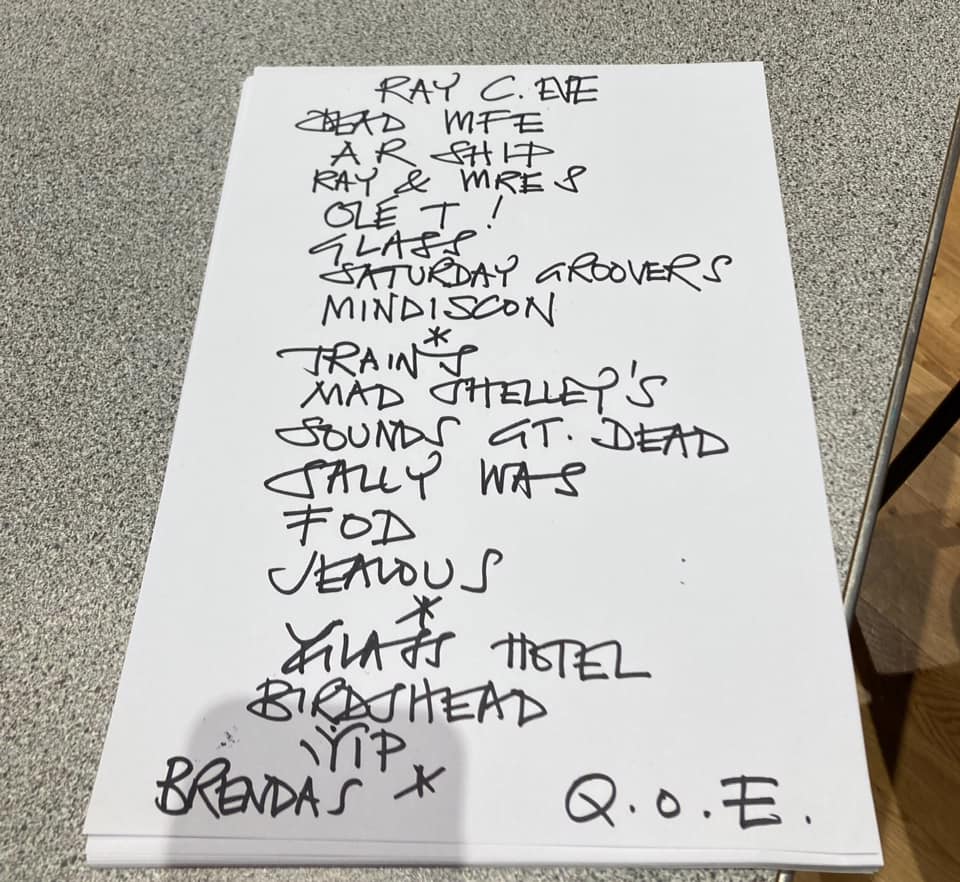 RAY C. EVE
DEAD MFE
A R SHIP
RAY & MRE S
OLÉ T !
GLASS
SATURDAY GROOVERS
MINDISCON
*
TRAINS
MAD SHELLEY'S
SOUNDS GT. DEAD
SALLY WAS
FOD
JEALOUS
*
GLASS HOTEL
BIRDSHEAD
YIP
BRENDAS * Q.O.E.